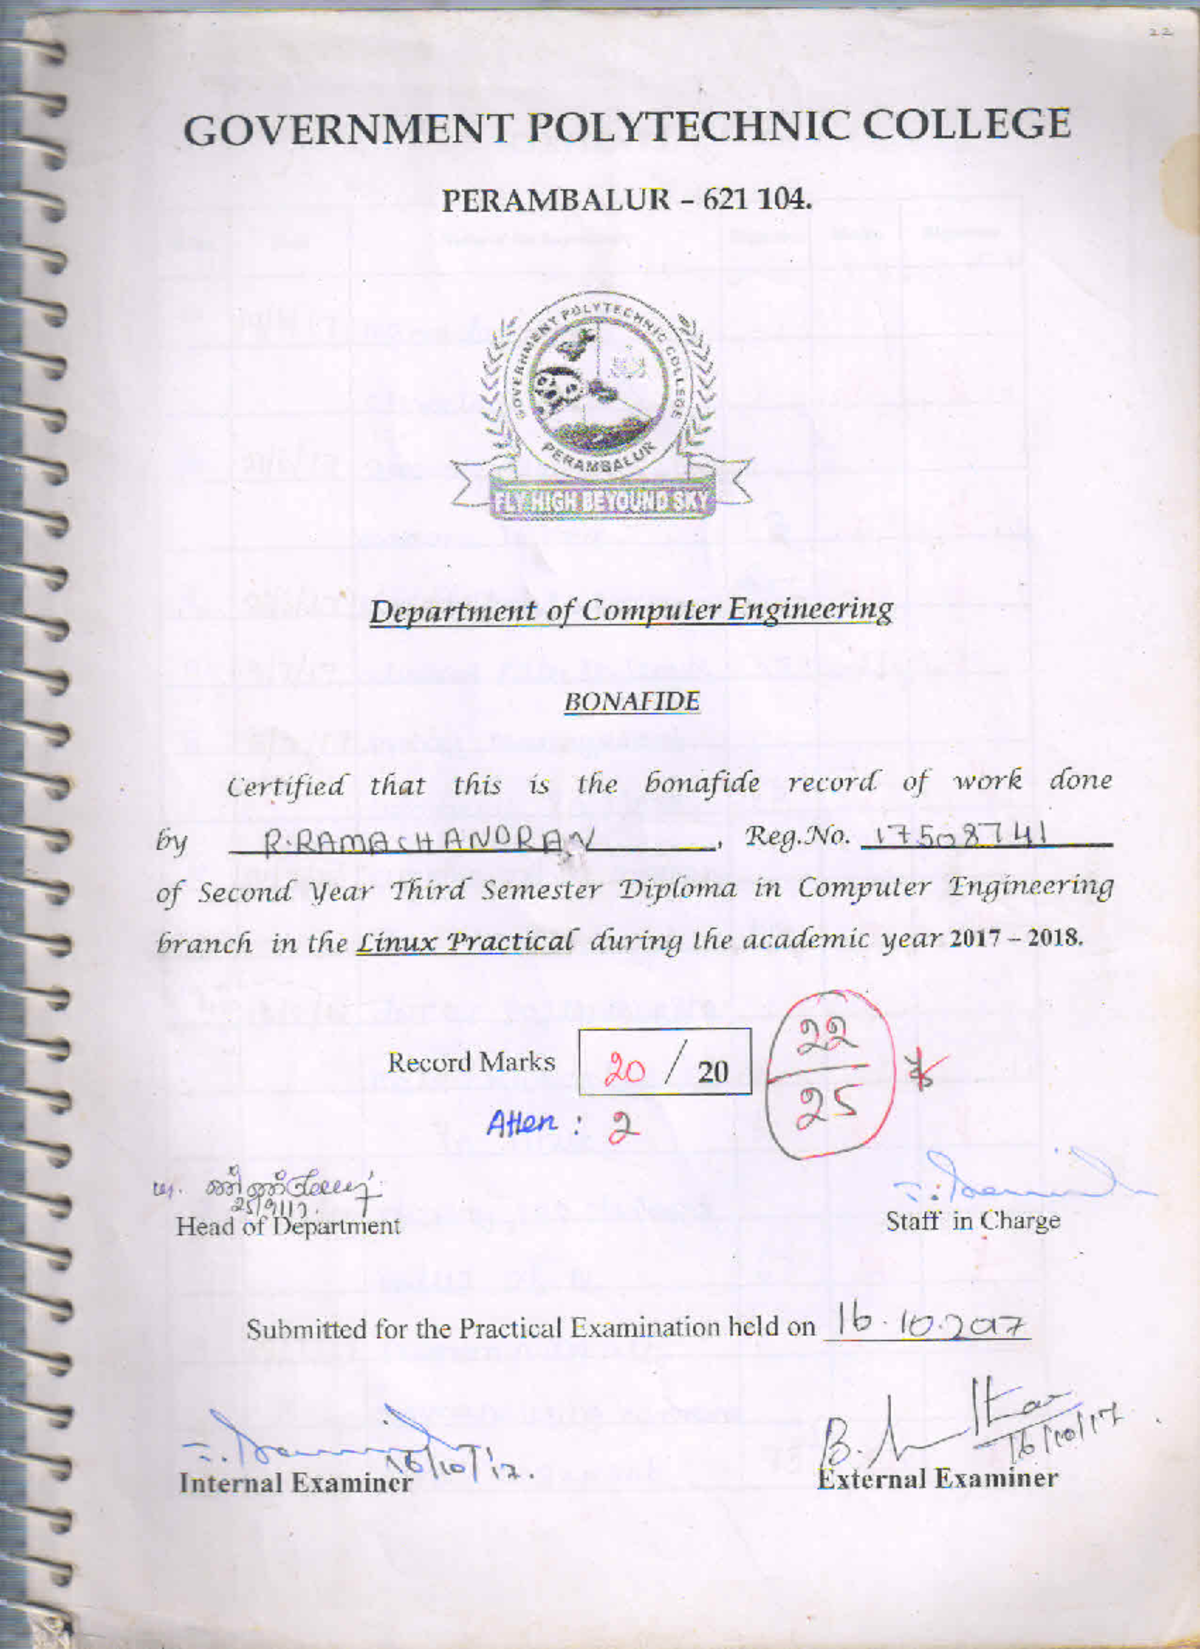 22
GOVERNMENT POLYTECHNIC COLLEGE
PERAMBALUR – 621 104.
GOVERNMENT POLYTECHNIC COLLEGE
PERAMBALUR
FLY HIGH BEYOUND SKY
Department of Computer Engineering
BONAFIDE
Certified that this is the bonafide record of work done
by R.RAMACHANDRAN, Reg.No. 17508741
of Second Year Third Semester Diploma in Computer Engineering
branch in the Linux Practical during the academic year 2017 – 2018.
Record Marks 20 / 20 22/25
Atten : 2
25/9/17
Head of Department Staff in Charge
Submitted for the Practical Examination held on 16.10.2017
16/10/17. 16/10/17
Internal Examiner External Examiner